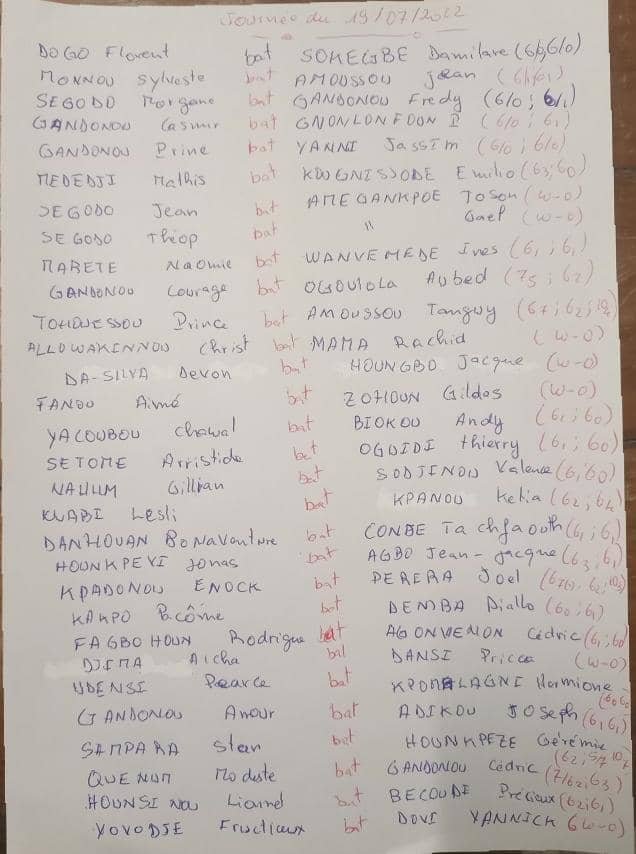 Journée du 19/07/2022
DOGO Florent bat SOKEGBE Damilare (6/0, 6/0)
MONNOU Sylveste bat AMOUSSOU Jean (6/1, 6/1)
SEGODO Morgane bat GANDONOU Fredy (6/0 ; 6/1)
GANDONOU Casmir bat GNONLONFOUN P (6/0 ; 6/1)
GANDONOU Prine bat YANNI Jassim (6/0 ; 6/0)
MEDEDJI Mathis bat KOUGNISSODE Emilio (63 ; 60)
SEGODO Jean bat AMEGANKPOE Toson (w-o)
SEGODO Théop bat " Gael (w-o)
MARETE Naomie bat WANVEMEDE Ines (61 ; 61)
GANDONOU Courage bat OGOUIOLA Aubed (75 ; 62)
TOHOUESSOU Prince bat AMOUSSOU Tanguy (67 ; 62 ;
ALLOWAKINNOU Christ bat MAMA Rachid (w-o)
DA-SILVA Devon bat HOUNGBO Jacque (w-o)
FANOU Aimé bat ZOHOUN Gildas (w-o)
YACOUBOU Chawal bat BIOKOU Andy (61 ; 60)
SETOME Arristide bat OGOIDI thierry (61 ; 60)
NAHUM Gillian bat SODJINOU Valence (61, 60)
KNABI Lesli bat KPANOU Ketia (62 ; 64)
DANHOUAN Bonaventure bat CONBE Tachfaouth (61 ; 61)
HOUNKPEVI Jonas bat AGBO Jean-jacque (63, 61)
KPADONOU ENOCK bat PERERA Joel
KAKPO Pacôme bat DEMBA Diallo (60 ; 61)
FAGBOHOUN Rodrigue bat AGONVENON Cédric (61 ; 60)
DJIMA Aicha bat DANSI Pricca (w-o)
UDENSI Pearce bat Hermione
GANDONOU Amour bat ADIKOU Joseph (61 61)
SAMPARA Stan bat HOUNKPEZE Gérémie
QUENUM Modeste bat GANDONOU Cédric (7/62 ; 63)
HOUNSINOU Lionnel bat BECOUDE Précieux (62 ; 61)
VOVODJE Fructueux bat DOVI YANNICK (w-o)